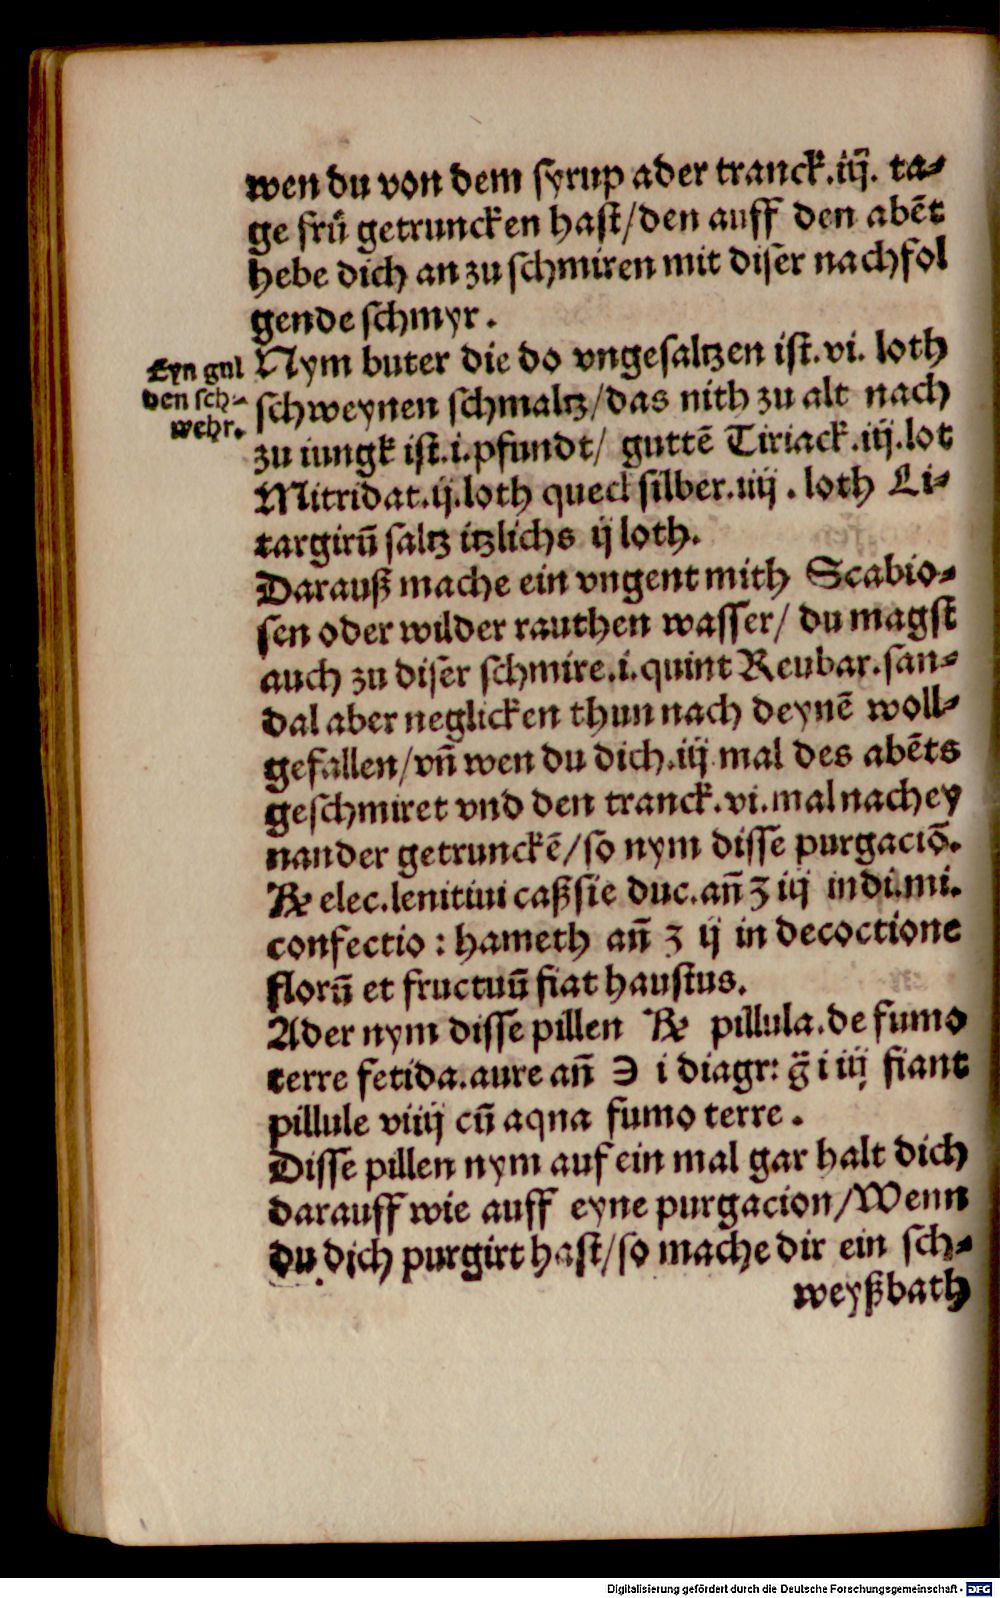 wen du von dem syrup ader tranck.iij̃. ta⸗
ge frů getruncken hast/den auff den abẽt
hebe dich an zu schmiren mit diser nachfol
gende schmyr.
Eyn gul
den sch⸗
wehr.
Nym buter die do vngesaltzen ist.vi. loth
schweynen schmaltz/das nith zu alt nach
zu iungk ist.i.pfundt/ guttẽ Tiriack.iij.lot
Mitridat.ij.loth quecksilber.iiij . loth Li⸗
targirũ saltz itzlichs ij loth.
Darauß mache ein vngent mith Scabio⸗
sen oder wilder rauthen wasser/ du magst
auch zu diser schmire.i.quint Reubar.san⸗
dal aber neglicken thun nach deynẽ woll⸗
gefallen/vñ wen du dich.iij mal des abẽts
geschmiret vnd den tranck.vi.mal nach ey
nander getrunckẽ/so nym disse purgaciõ.
℞ elec.lenitiui caßsie duc.añ ʒ iij indi.mi.
confectio : hameth añ ʒ ij in decoctione
florũ et fructuũ fiat haustus.
Ader nym disse pillen ℞ pillula.de fumo
terre fetida.aure añ ℈ i diagr: g̃ i iij fiant
pillule viiij cũ aqna fumo terre .
Disse pillen nym auf ein mal gar halt dich
darauff wie auff eyne purgacion/Wenn
du dich purgirt hast/so mache dir ein sch⸗
weyßbath
Digitalisierung gefördert durch die Deutsche Forschungsgemeinschaft - DFG